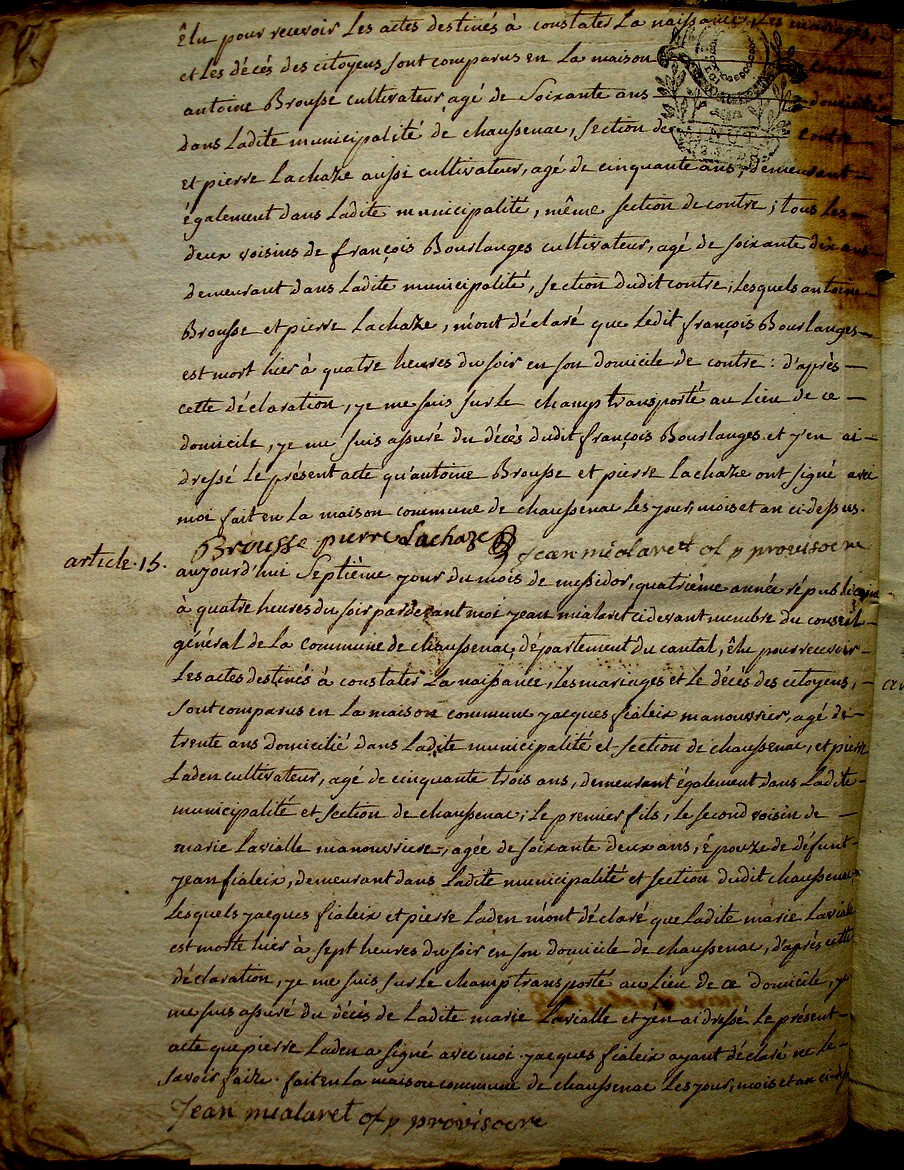 êlu pour recevoir les actes destinés à constater la naissance, les mariages,
et les décés des citoyens, sont comparus en la maison
antoine Brousse cultivateur, agé de Soixante ans domicilié
dans ladite municipalité de chaussenac, section de contre
et pierre Lachaze aussi cultivateur, agé de cinquante ans, demeurant
également dans ladite municipalité, même section de contre; tous les
deux voisins de françois Bourlanges cultivateur, agé de soixante dix ans
demeurant dans ladite municipalité, section dudit contre, lesquels antoine
Brousse et pierre Lachaze, m'ont déclaré que ledit françois Bourlanges
est mort hier à quatre heures du soir en son domicile de contre : d'après
cette déclaration, je me suis sur le champ transporté au lieu de ce
domicile, je me suis assuré du décés dudit françois Bourlanges et j'en ai
dressé le présent acte qu'antoine Brousse et pierre Lachaze ont signé avec
moi fait en la maison commune de chaussenac les jour, mois et an ci-dessus.
Brousse pierre Lachaze Jean mialaret of p provisoere
article. 15.
aujourd'hui Septième jour du mois de messidor, quatrième année républicaine
à quatre heures du soir pardevant moi jean mialaret ci devant membre du conseil
général de la commune de chaussenac, département du cantal, êlu pour recevoir
les actes destinés à constater la naissance, les mariages et le décés des citoyens,
sont comparus en la maison commune jacques fialeix manouvrier, agé de
trente ans domicilié dans ladite municipalité et section de chaussenac, et pierre
Laden cultivateur, agé de cinquante trois ans, demeurant également dans ladite
municipalité et section de chaussenac; le premier fils, le second voisin de
marie Lavialle manouvriere, agée de soixante deux ans, épouze de défunt
jean fialeix, demeurant dans ladite municipalité et section dudit chaussenac
lesquels jacques fialeix et pierre Laden m'ont déclaré que ladite marie Lavialle
est morte hier à sept heures du soir en son domicile de chaussenac, d'après cette
déclaration, je me suis sur le champ transporté au lieu de ce domicile, je
me suis assuré du décés de ladite marie Lavialle et j'en ai dressé le présent
acte que pierre Laden a signé avec moi. jacques fialeix ayant déclaré ne le
savoir faire. fait en la maison commune de chaussenac les jour, mois et an ci-dessus
Jean mialaret of p provisoere